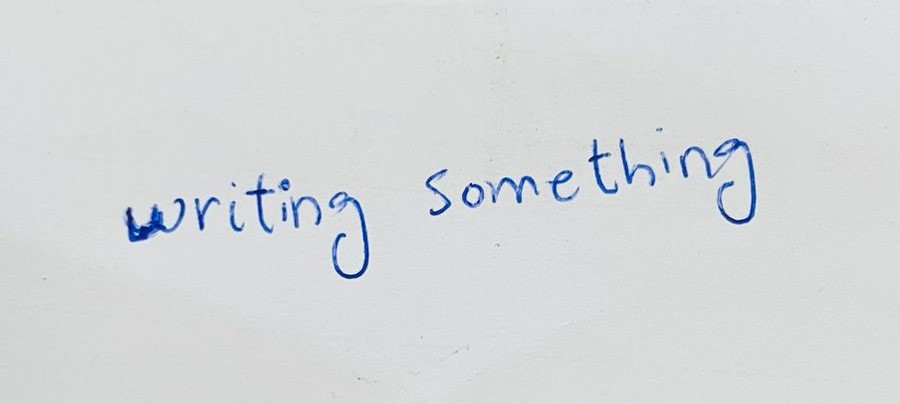 writing something